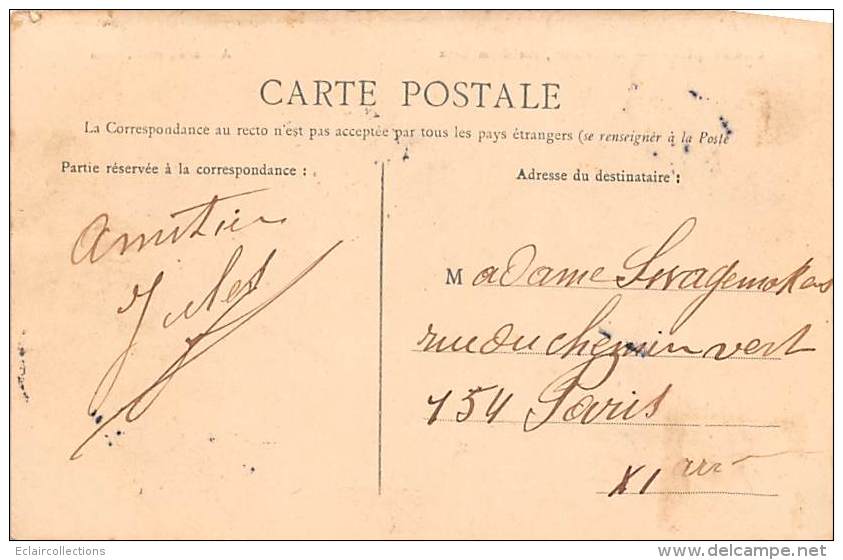 CARTE POSTALE
La Correspondance au recto n'est pas acceptée par tous les pays étrangers (se renseigner à la Poste
Partie réservée à la correspondance :
Adresse du destinataire :
Jules
Madame
rue du chemin vert
154 Paris
XI arr
Eclaircollections
www.delcampe.net